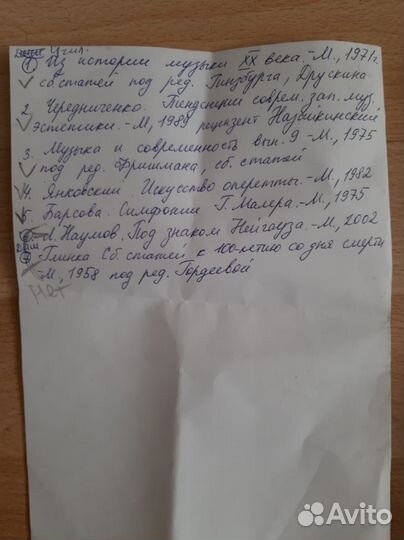 1 Из истории музыки XX века.-М., 1971г.
сб.статей под ред. Гинзбурга, Друскина
2. Чередниченко. Тенденции соврем. зап. муз.
эстетики.-М., 1989 рецензент Назайкинский
3. Музыка и современность вып. 9-М., 1975
под ред. Фришмана, сб. статей
4. Янковский. Искусство оперетты.-М., 1982
5. Барсова. Симфонии Г. Малера.-М., 1975
Л. Наумов. Под знаком Нейгауза.-М., 2002
Глинка Сб. статей к 100-летию со дня смерти
-М., 1958 под ред. Гордеевой
Нет
Avito